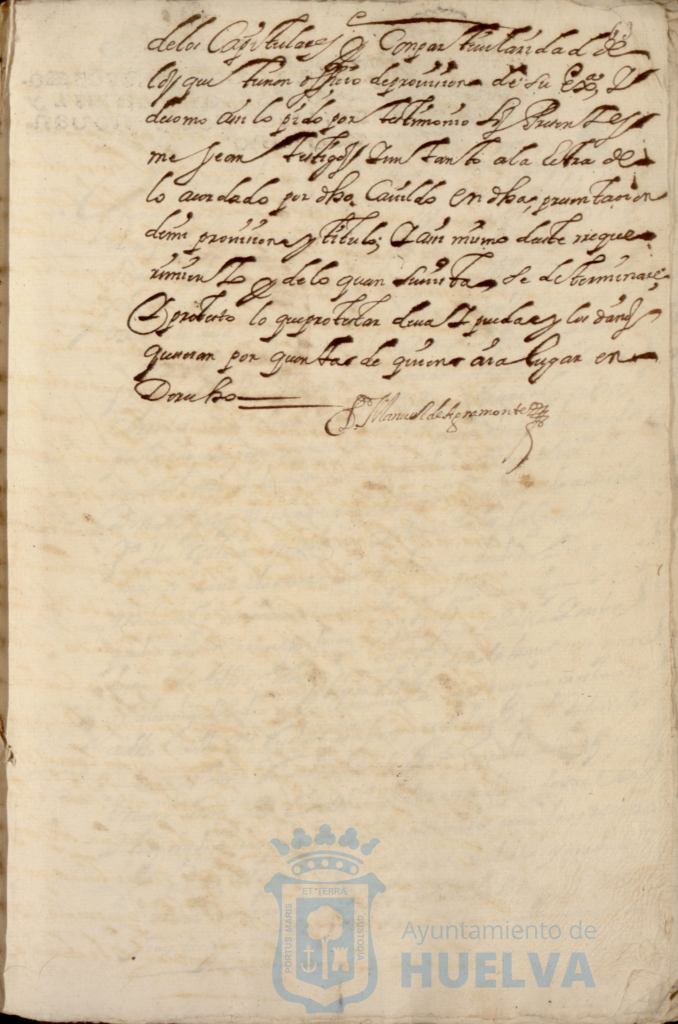 de los Capitulares y Con particularidad de
los que tienen offiçio de provission de su Exa, Y
de como assi lo pido por testimonio los Pressentes
me sean testigos Y un tanto a la letra de
lo acordado por dho Cavildo en dha pressentacion
de mi provission y titulo; Y assi mismo deste reque
rimiento y de lo que en su vista se determinare;
Y protesto lo que protestar deva Y pueda y los daños
que sean por quenta de quien aia lugar en
Derecho
D. Manuel de Agremonte
PORTUS MARIS
ET TERRÆ
CUSTODIA
Ayuntamiento de
HUELVA